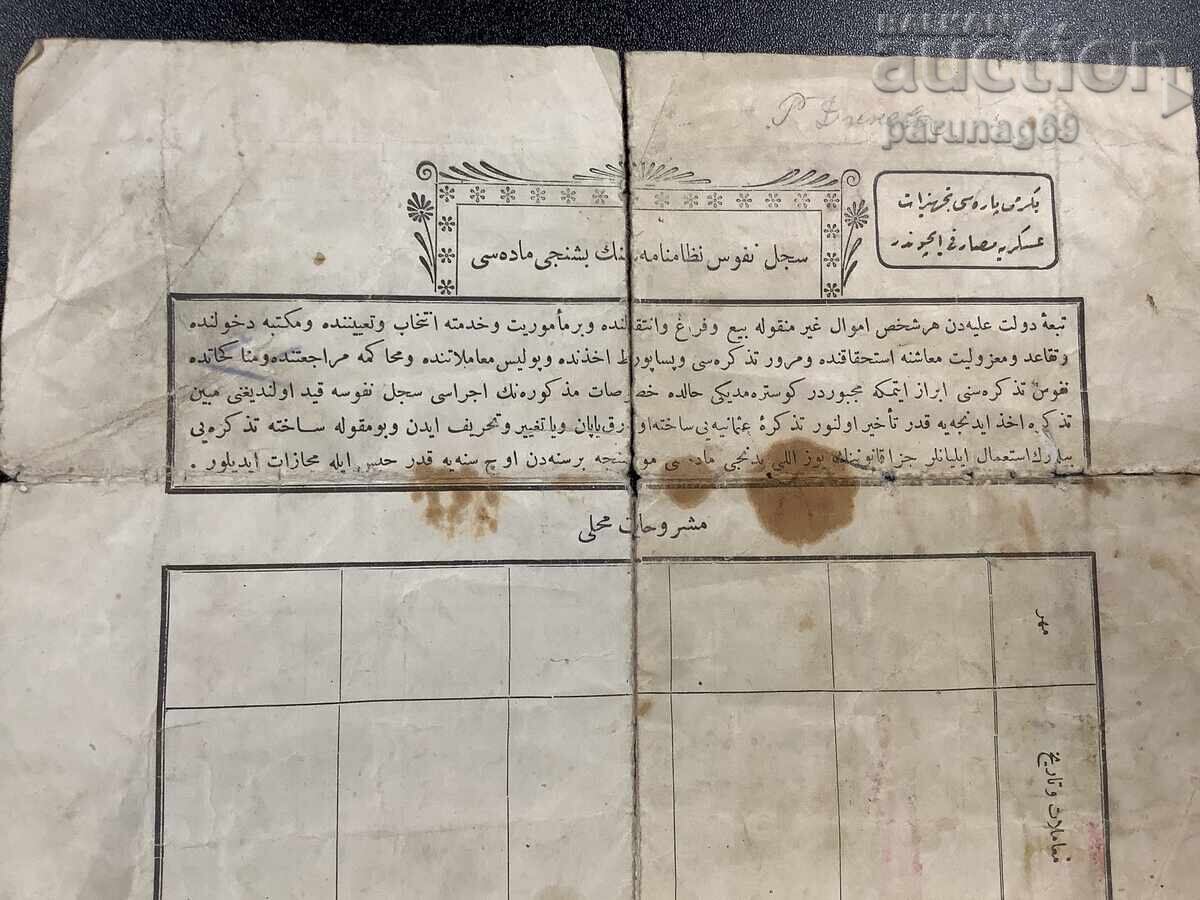 BALKAN
auction
parunag69
يكرمى پاره‌سى تجهيزات
عسكريه مصارفى ايچوندر
سجل نفوس نظامنامه‌سنك بشنجى ماده‌سى
تبعۀ دولت عليه‌دن هر شخص اموال غير منقوله بيع و فراغ و انتقالنده و بر مأموريت و خدمته انتخاب و تعييننده و مكتبه دخولنده
و تقاعد و معزوليت معاشنه استحقاقنده و مرور تذكره‌سى و پساپورط اخذنده و پوليس معاملاتنده و محاكمه مراجعتنده و مناكحاتده
نفوس تذكره‌سنى ابراز ايتمكه مجبوردر كوستره‌مديكى حالده خصوصات مذكوره‌نك اجراسى سجل نفوسه قيد اولنديغنى مبين
تذكره اخذ ايدنجه‌يه قدر تأخير اولنور تذكرۀ عثمانيه‌يى ساخته اوله‌رق ياپان ويا تغيير و تحريف ايدن و بو مقوله ساخته تذكره‌يى
بيله‌رك استعمال ايليانلر جزا قانوننك يوز اللى يدنجى ماده‌سى موجبنجه بر سنه‌دن اوچ سنه‌يه قدر حبس ايله مجازات ايديلور .
مشروحات محلى
مهر
معاملات و تاريخ